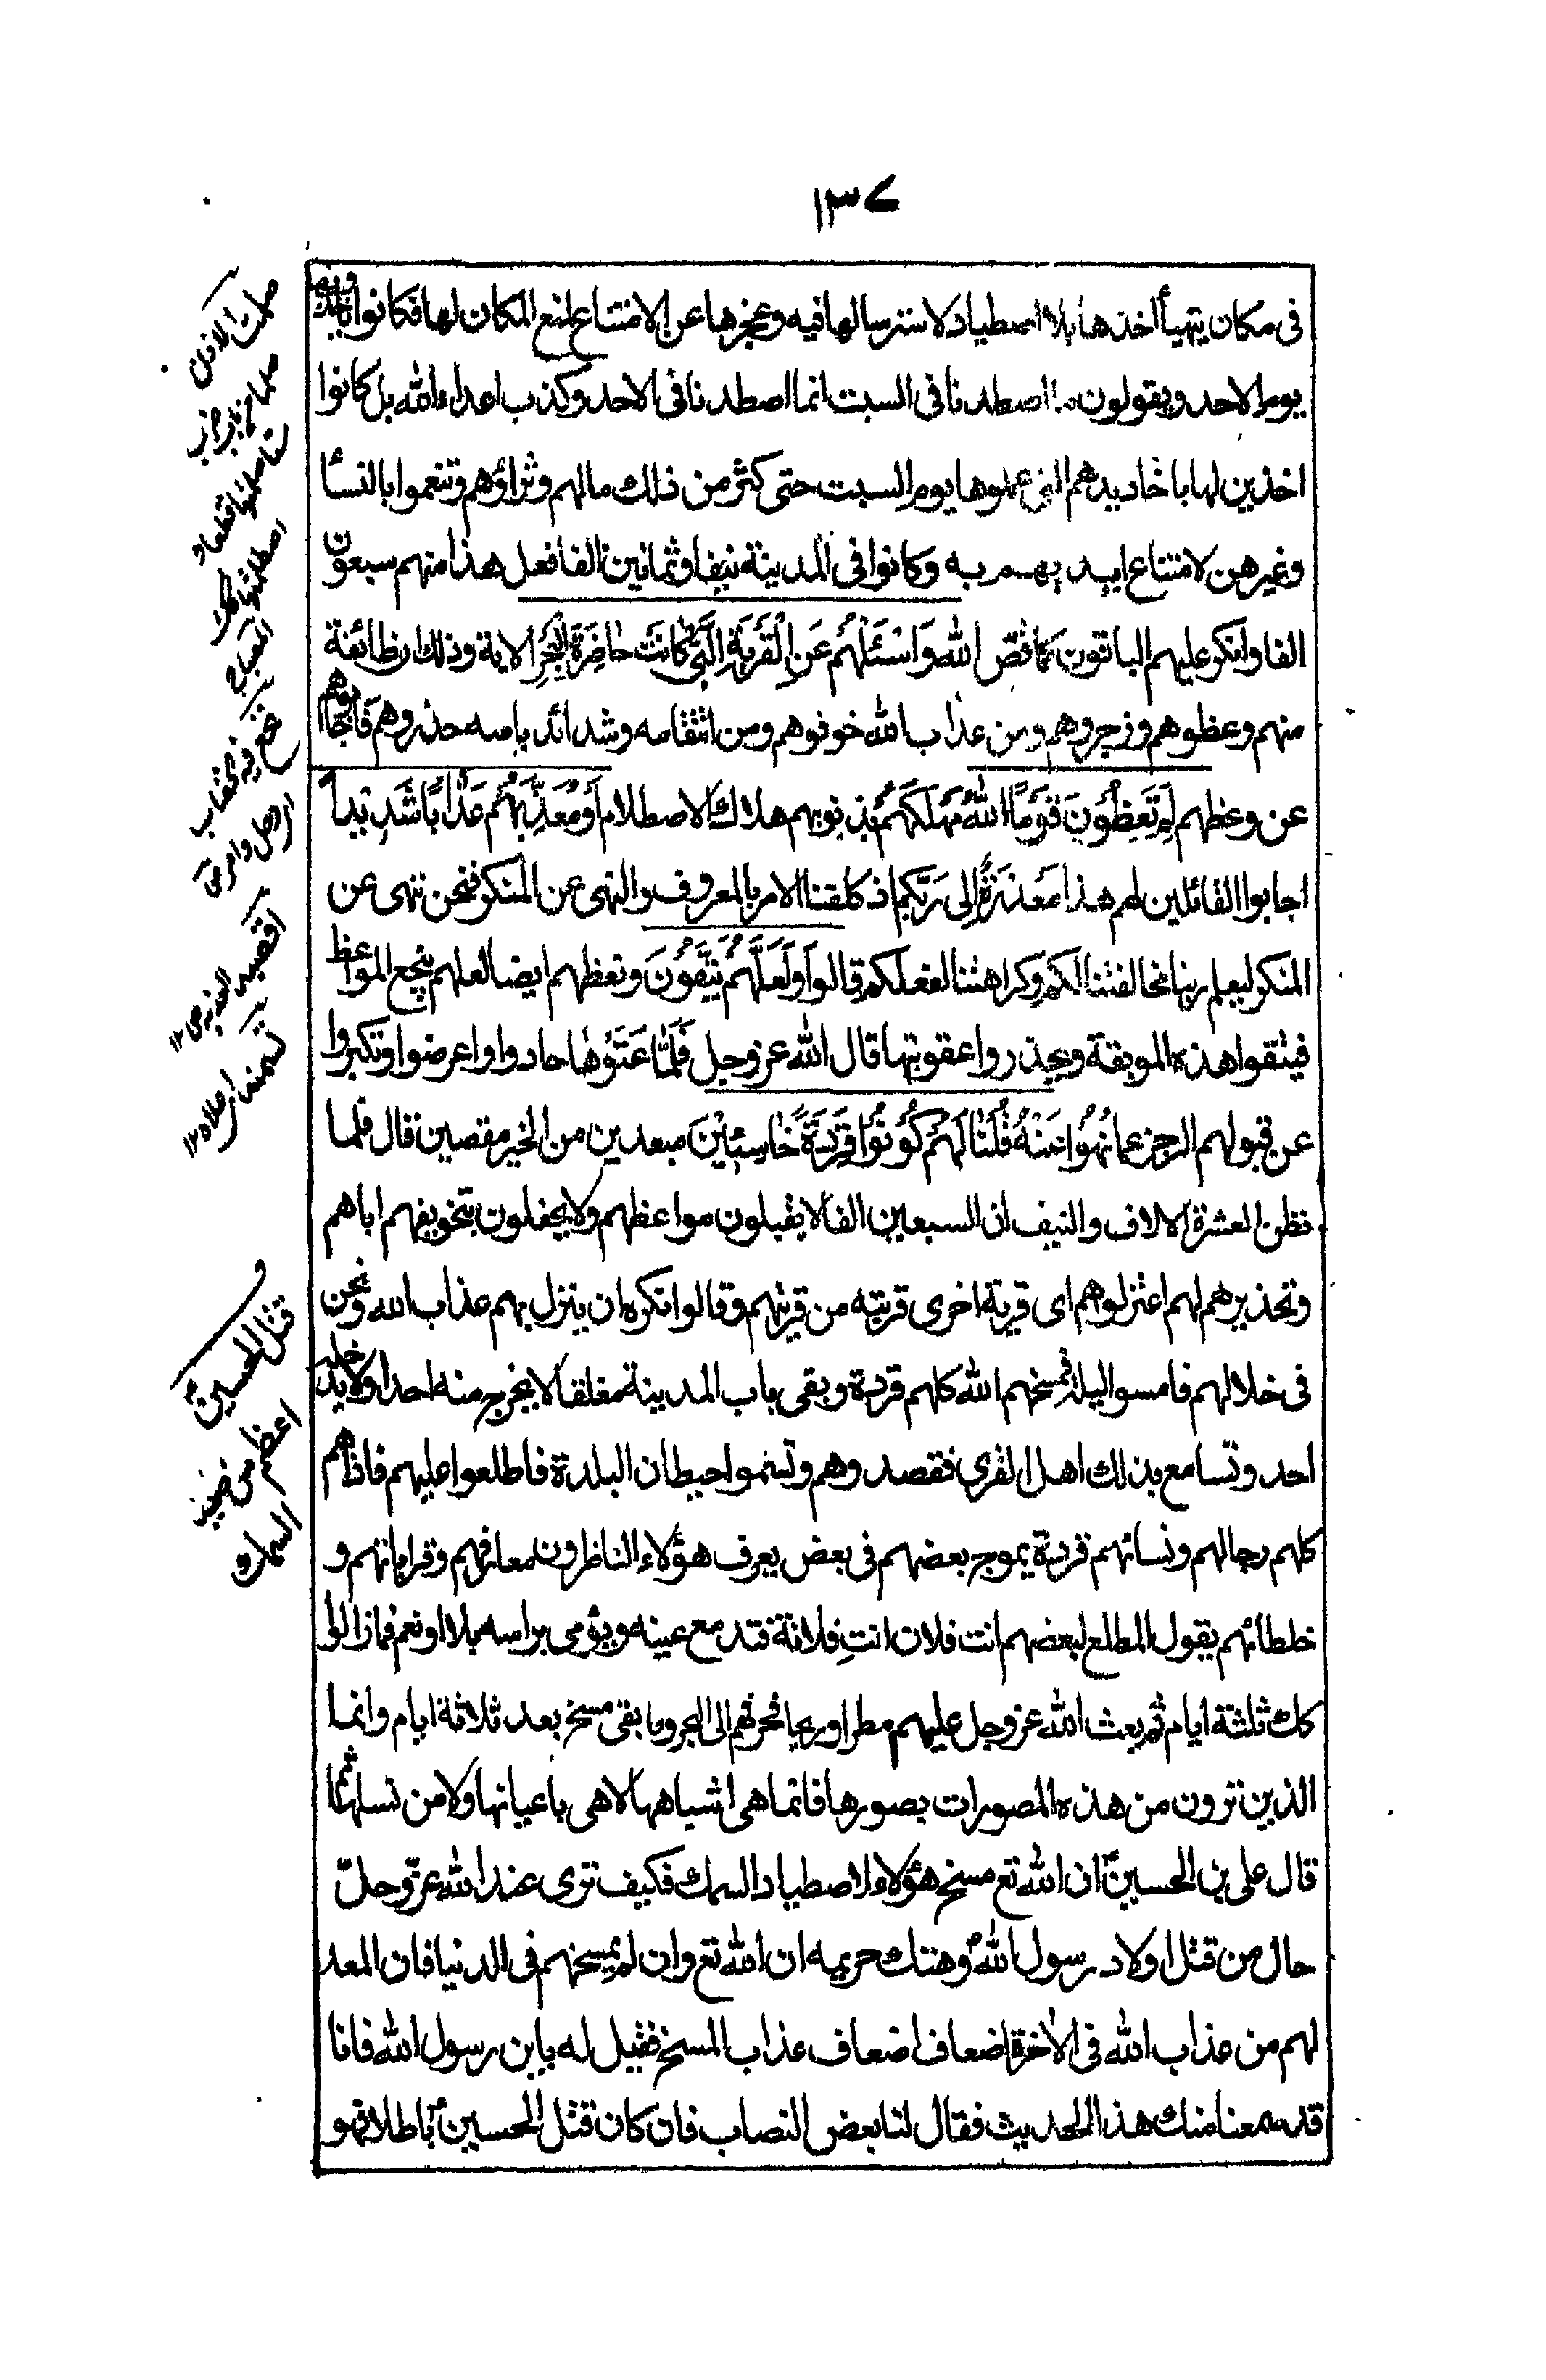 ١٣٧
فى مكان يتهيأ اخذها بلا اصطياد لاسترسالها فيه وعجزها عن الامتناع لمنع المكان لها فكانوا ياخذونها
يوم الاحد ويقولون ما اصطدنا فى السبت انما اصطدنا فى الاحد وكذب اعداء الله بل كانوا
اخذين لها باخاديدهم التى عملوها يوم السبت حتى كثر من ذلك مالهم وثراؤهم وتنعموا بالنسأ
وغيرهن لامتناع ايديهم به وكانوا فى المدينة نيفا وثمانين الفا فعل هذا منهم سبعون
الفا وانكر عليهم الباقون كما قصّ الله وَاسْئَلْهُمْ عَنِ الْقَرْيَةِ الَّتِى كَانَتْ حَاضِرَةَ الْبَحْرِ الاية وذلك ان طائفة
منهم وعظوهم وزجروهم ومن عذاب الله خوفوهم ومن انتقامه وشدائد باسه حذروهم فاجابوهم
عن وعظهم لِمَ تَعِظُونَ قَوْمًا اللهُ مُهْلِكُهُمْ بذنوبهم هلاك الاصطلام أَوْ مُعَذِّبُهُمْ عَذَابًا شَدِيْداً
اجابوا القائلين لهم هذا مَعْذِرَةً إِلى رَبِّكُمْ اذ كلفنا الامر بالمعروف والنهى عن المنكر فنحن ننهى عن
المنكر ليعلم ربنا مخالفتنا لكم وكراهتنا لفعلكم قالوا وَلَعَلَّهُمْ يَتَّقُوْنَ ونعظهم ايضا لعلهم ينجع المواعظ
فيتقوا هذه الموبقة ويحذروا عقوبتها قال الله عزوجل فَلَمَّا عَتَوْهَا حادوا واعرضوا وتكبروا
عن قبولهم الزجر عما نُهُوْا عَنْهُ قُلْنَا لَهُمْ كُوْنُوْا قِرَدَةً خَاسِئِيْنَ مبعدين من الخير مقصين قال فلما
نظن العشرة الالاف والنيف ان السبعين الفا لا يقبلون مواعظهم ولا يحفلون بتخويفهم اياهم
وتحذيرهم لهم اعتزلوهم اى قرية اخرى قريبه من قريتهم وقالوا نكره ان ينزل بهم عذاب الله ونحن
فى خلالهم فامسوا ليلة فمسخهم الله كلهم قردة وبقى باب المدينة مغلقا لا يخرج منه احد ولا يدخله
احد وتسامع بذلك اهل القرى فقصدوهم وتسنموا حيطان البلدة فاطلعوا عليهم فاذا هم
كلهم رجالهم ونسائهم قردة يموج بعضهم فى بعض يعرف هؤلاء الناظرون معارفهم وقراباتهم و
خلطائهم يقول المطلع لبعضهم انت فلان انتِ فلانة فتدمع عينه ويؤمى براسه بلا او نعم فما زالوا
كك ثلثة ايام ثم بعث الله عزوجل عليهم مطرا وريحا فجرفهم الى البحر وما بقى مسخ بعد ثلاثة ايام وانما
الذين ترون من هذه المصورات بصورها فانما هى اشباهها لا هى باعيانها ولا من نسلها ثم
قال على بن الحسينؑ ان الله تع مسخ هؤلاء لاصطياد السمك فكيف ترى عند الله عزّوجلّ
حال من قتل اولاد رسول اللهؐ وهتك حريمه ان الله تع وان لم يمسخهم فى الدنيا فان المعد
لهم من عذاب الله فى الاخرة اضعاف اضعاف عذاب المسخ فقيل له يابن رسول الله فانا
قد سمعنا منك هذا الحديث فقال لنا بعض النصاب فان كان قتل الحسينؑ باطلا فهو
قتل الحسينؑ
اعظم من
السمك